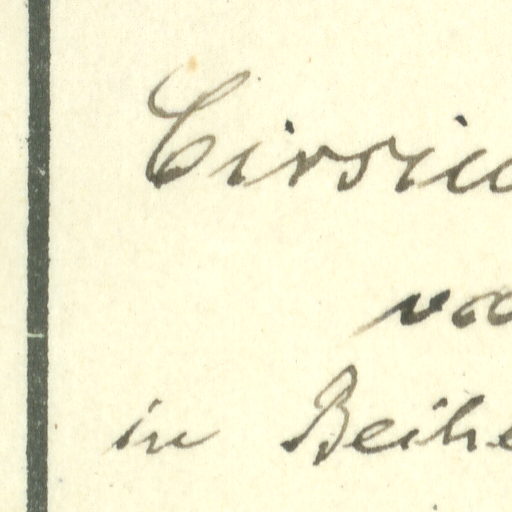 Cirsiu
va
in Beihe